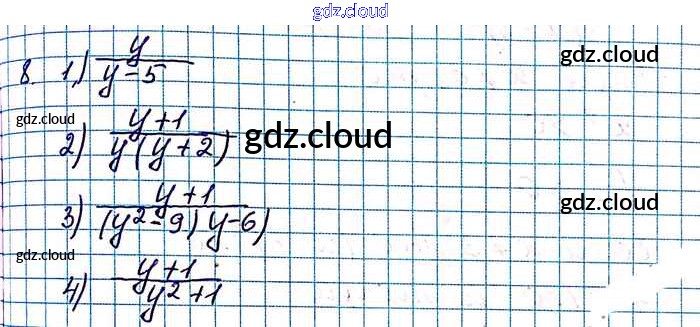 gdz.cloud
8. 1) y / y - 5
gdz.cloud
gdz.cloud
2) y + 1 / y (y + 2)
gdz.cloud
3) y + 1 / (y² - 9) y - 6)
gdz.cloud
gdz.cloud
4) y + 1 / y² + 1